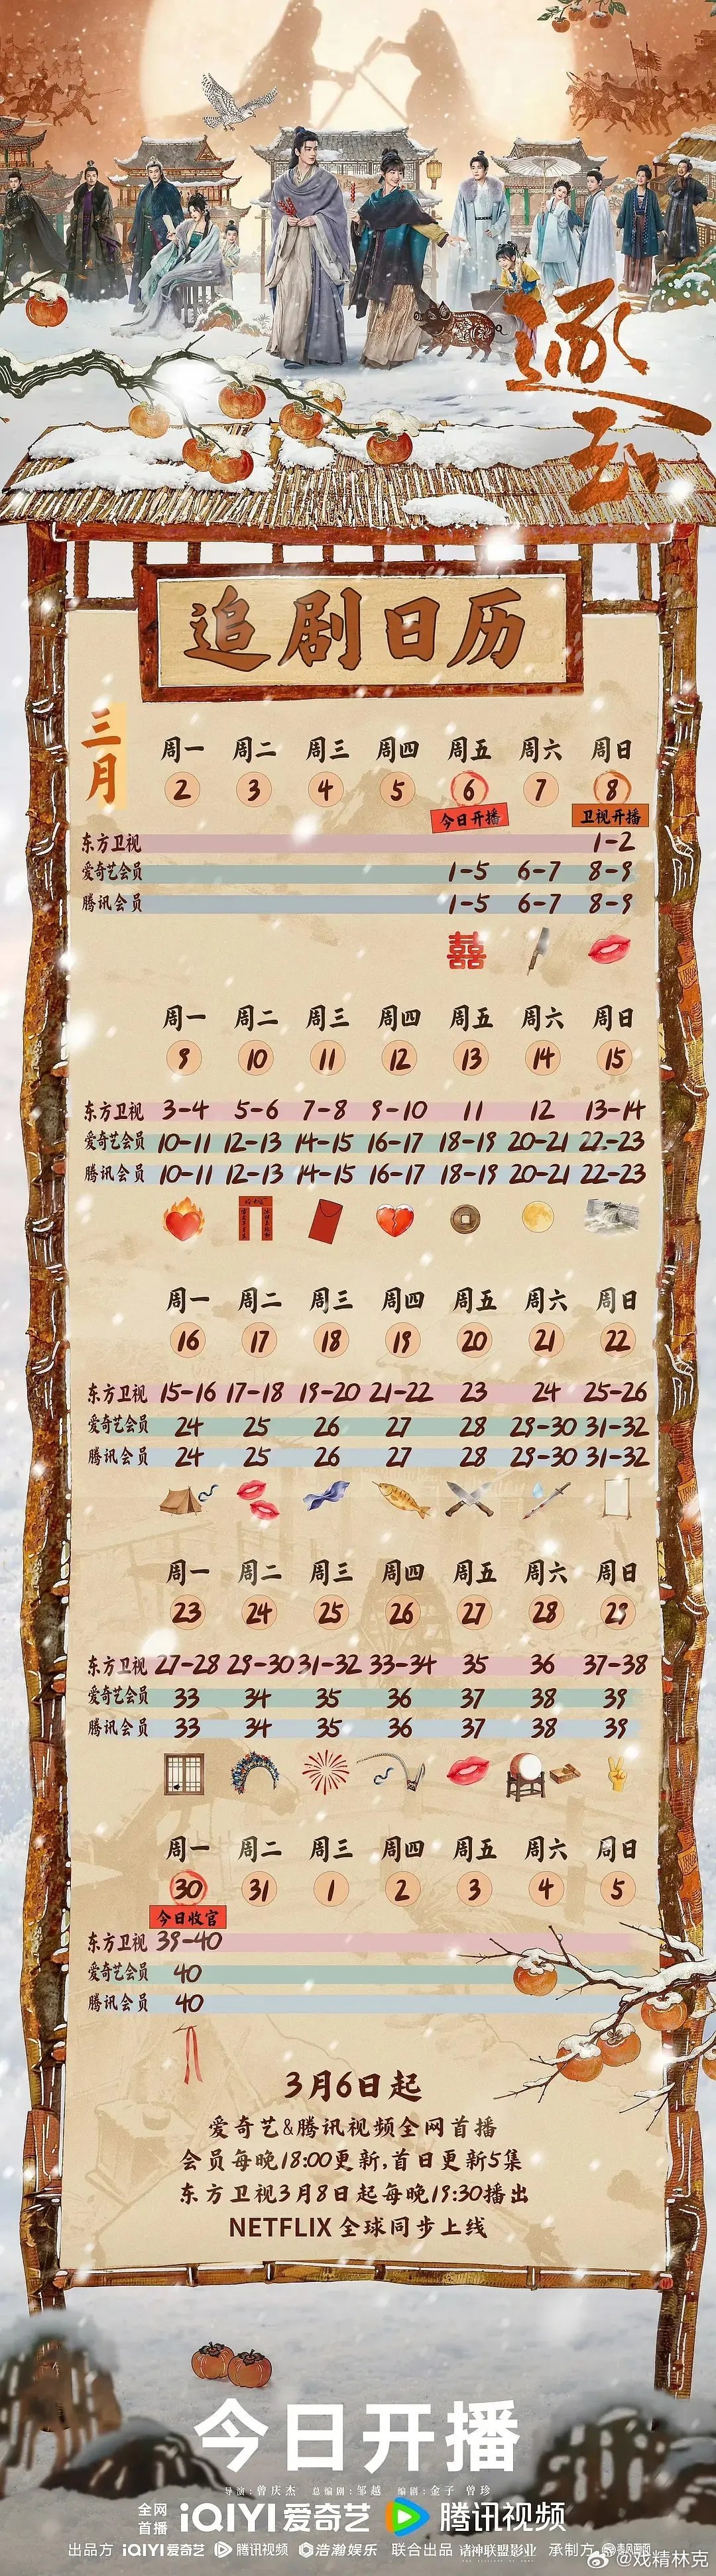 逐玉
追剧日历
三月
周一 周二 周三 周四 周五 周六 周日
2 3 4 5 6 7 8
今日开播 卫视开播
东方卫视 1-2
爱奇艺会员 1-5 6-7 8-9
腾讯会员 1-5 6-7 8-9
囍
周一 周二 周三 周四 周五 周六 周日
9 10 11 12 13 14 15
东方卫视 3-4 5-6 7-8 9-10 11 12 13-14
爱奇艺会员 10-11 12-13 14-15 16-17 18-19 20-21 22-23
腾讯会员 10-11 12-13 14-15 16-17 18-19 20-21 22-23
周一 周二 周三 周四 周五 周六 周日
16 17 18 19 20 21 22
东方卫视 15-16 17-18 19-20 21-22 23 24 25-26
爱奇艺会员 24 25 26 27 28 29-30 31-32
腾讯会员 24 25 26 27 28 29-30 31-32
周一 周二 周三 周四 周五 周六 周日
23 24 25 26 27 28 29
东方卫视 27-28 29-30 31-32 33-34 35 36 37-38
爱奇艺会员 33 34 35 36 37 38 39
腾讯会员 33 34 35 36 37 38 39
周一 周二 周三 周四 周五 周六 周日
30 31 1 2 3 4 5
今日收官
东方卫视 39-40
爱奇艺会员 40
腾讯会员 40
3月6日起
爱奇艺&腾讯视频全网首播
会员每晚18:00更新,首日更新5集
东方卫视3月8日起每晚19:30播出
NETFLIX 全球同步上线
今日开播
导演:曾庆杰 总编剧:邹越 编剧:金子 曾珍
全网首播 iQIYI 爱奇艺 腾讯视频
出品方 iQIYI 爱奇艺 腾讯视频 浩瀚娱乐 联合出品 诸神联盟影业 承制方
@戏精林克